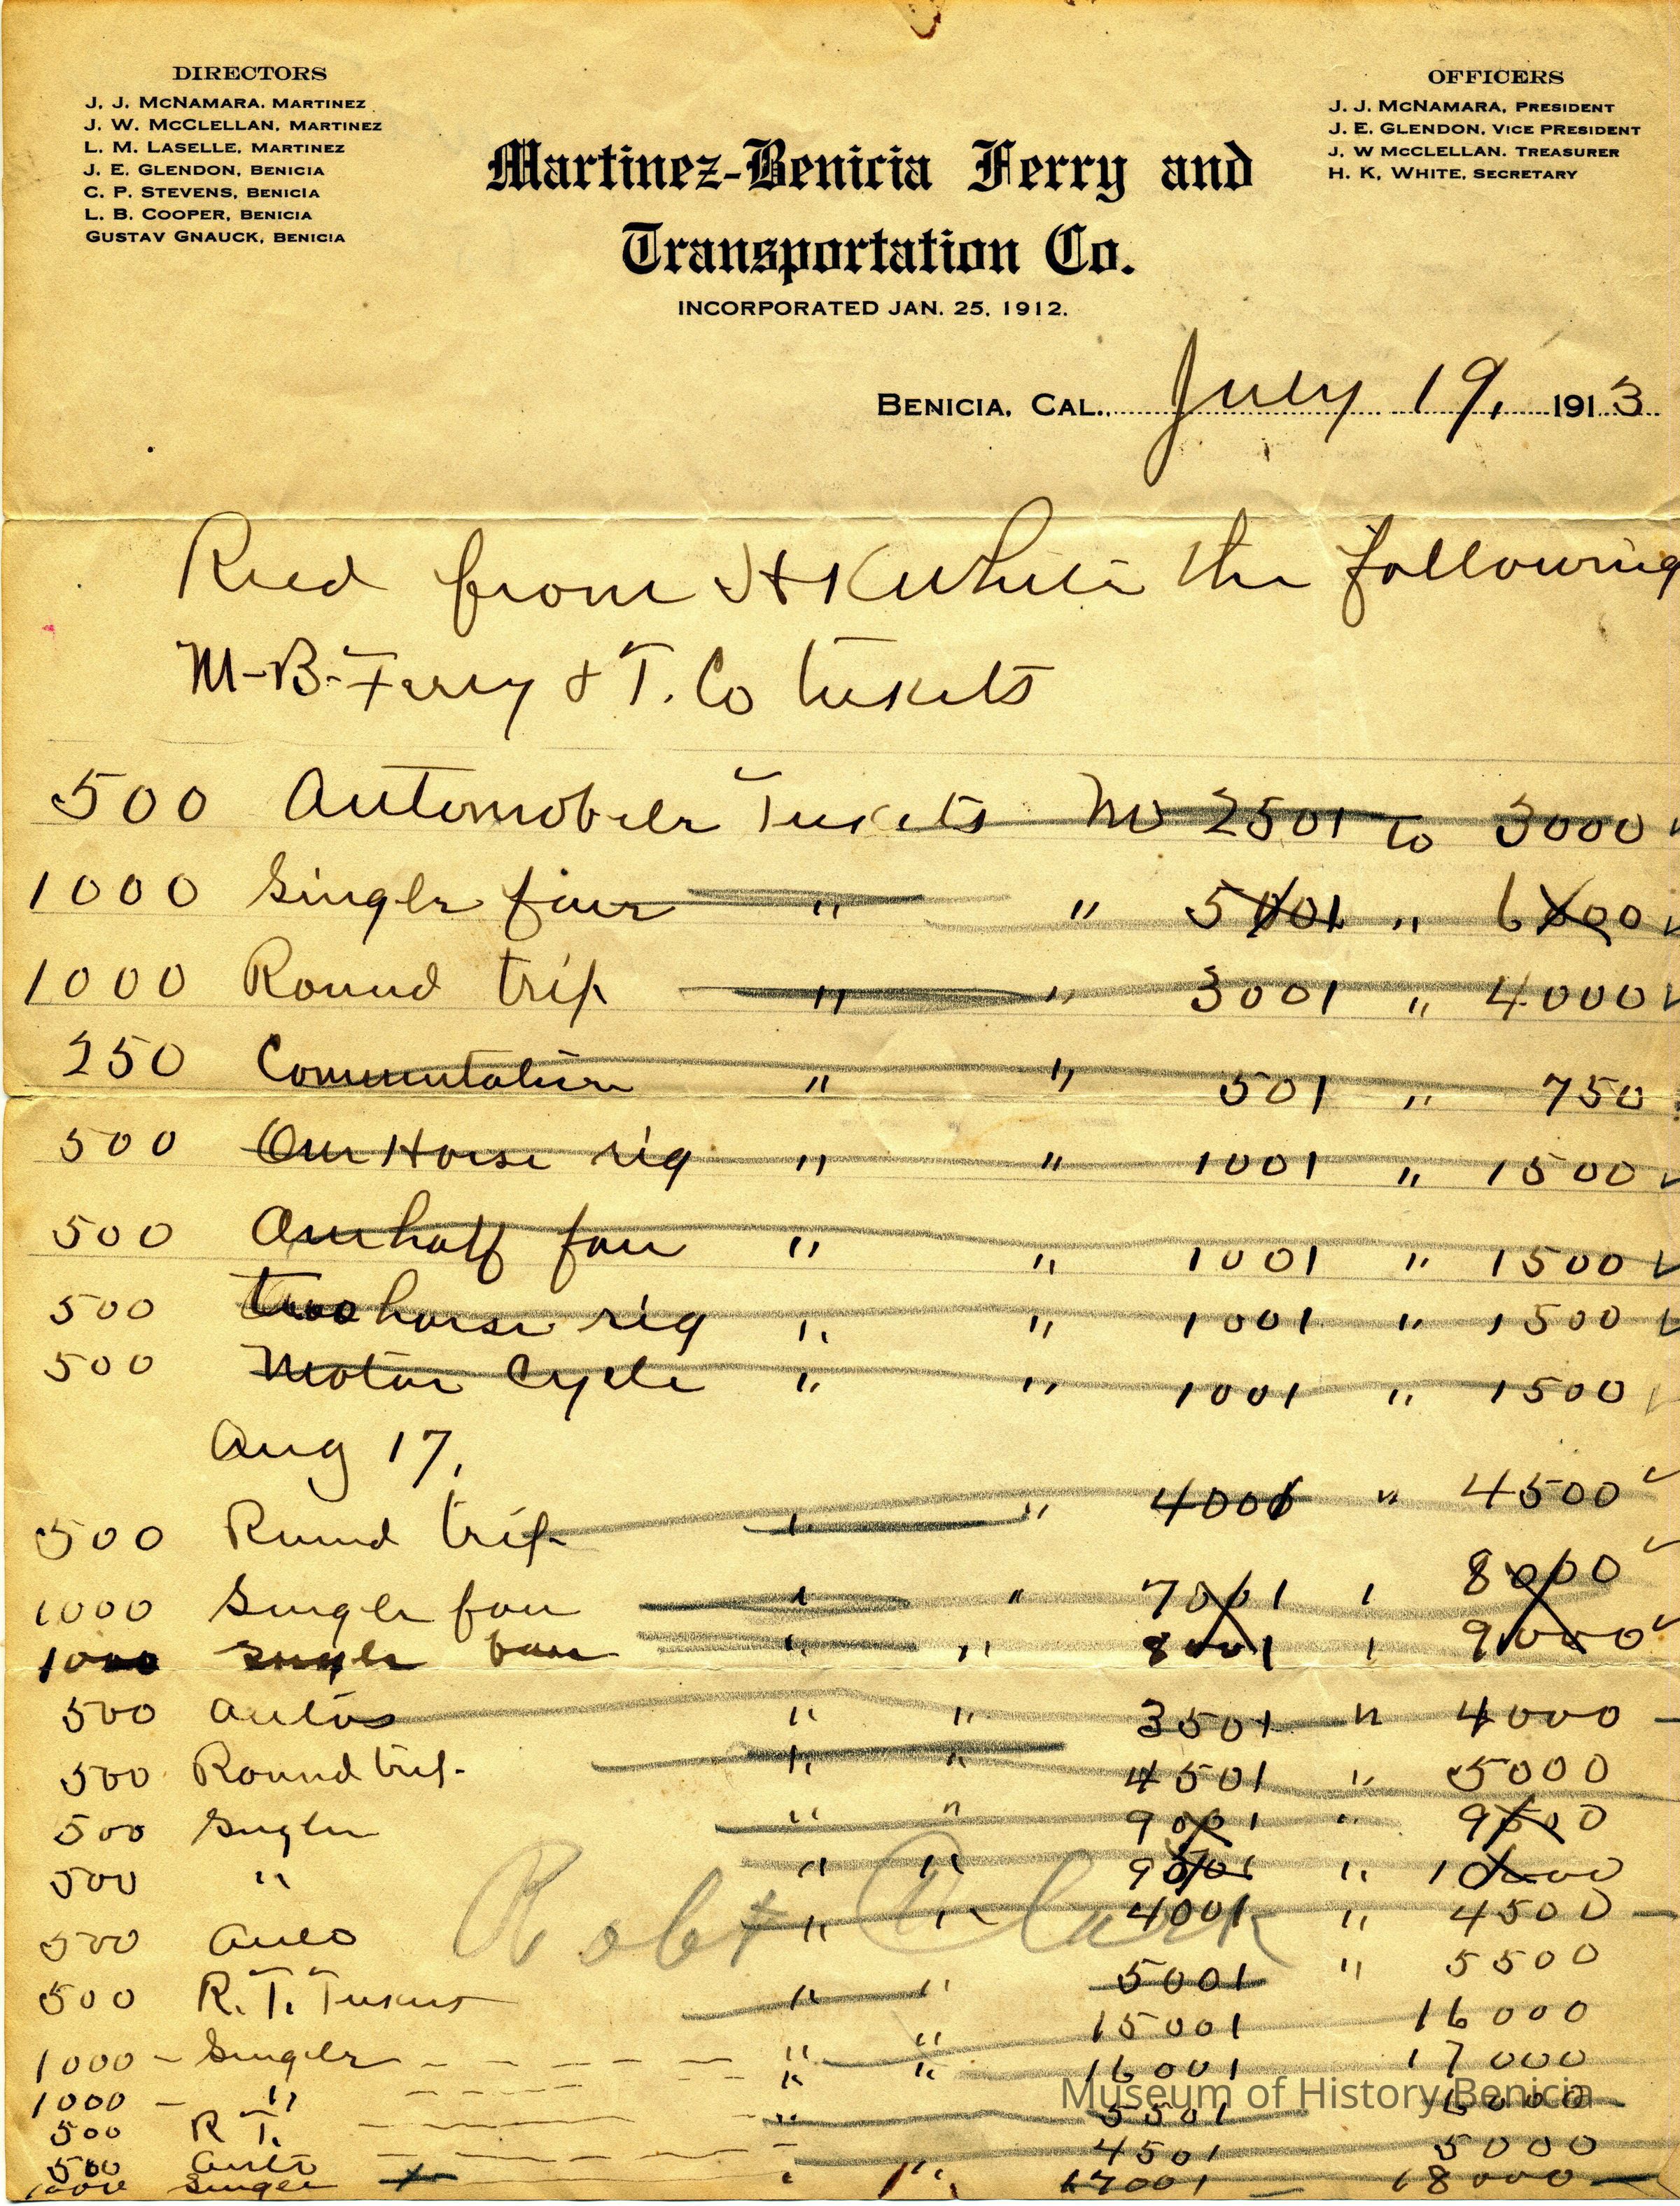 DIRECTORS
J. J. McNAMARA. MARTINEZ
J. W. McCLELLAN, MARTINEZ
L. M. LASELLE, MARTINEZ
J. E. GLENDON, BENICIA
C. P. STEVENS, BENICIA
L. B. COOPER, BENICIA
GUSTAV GNAUCK, BENICIA
OFFICERS
J. J. McNAMARA, PRESIDENT
J. E. GLENDON, VICE PRESIDENT
J. W McCLELLAN. TREASURER
H. K. WHITE, SECRETARY
Martinez-Benicia Ferry and
Transportation Co.
INCORPORATED JAN. 25, 1912.
BENICIA, CAL., July 19, 1913
Recd from H K White the following
M-B-Ferry & T. Co tickets
500 Automobile Tickets No 2501 to 3000
1000 Single fare " " 5001 " 6000
1000 Round trip " " 3001 " 4000
250 Commutation " " 501 " 750
500 One Horse rig " " 1001 " 1500
500 One half fare " " 1001 " 1500
500 two horse rig " " 1001 " 1500
500 Motor Cycle " " 1001 " 1500
Aug 17,
500 Round trip " " 4001 " 4500
1000 Single fare " " 7001 " 8000
1000 single fare " " 8001 " 9000
500 autos " " 3501 " 4000
500 Round trip " " 4501 " 5000
500 Single " " 9001 " 9500
500 " " " 9501 " 10000
500 Auto " " 4001 " 4500
Robt Clark
500 R. T. Tickets " " 5001 " 5500
1000 - Single " " 15001 16000
1000 - " " " 16001 17000
500 R T. " 5501 6000
500 Auto 4501 5000
1000 Single " " 17001 - 18000
Museum of History Benicia